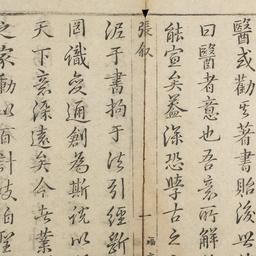 醫或勸其著書貽後世
曰醫者意也吾意所解
能宣矣蓋深恐學古之
張叙
一
泥于書拘于法引經斷
罔識變通創為斯說以
天下意深遠矣今其業
之家動
百計